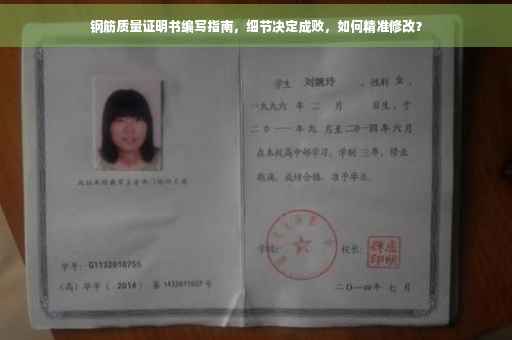 钢筋质量证明书编写指南，细节决定成败，如何精准修改？
学生 刘婉玲 ，性别 女 ，
一九九六 年 二 月 日生，于
二〇一一年九 月至二〇一四年六月
在本校高中部学习，学制 三年，修业
期满，成绩合格，准予毕业。
学号：G1132010755
(高) 毕字 ( 2014 ) 第 1432011027 号
学校：
校长：
二〇一四年 七 月